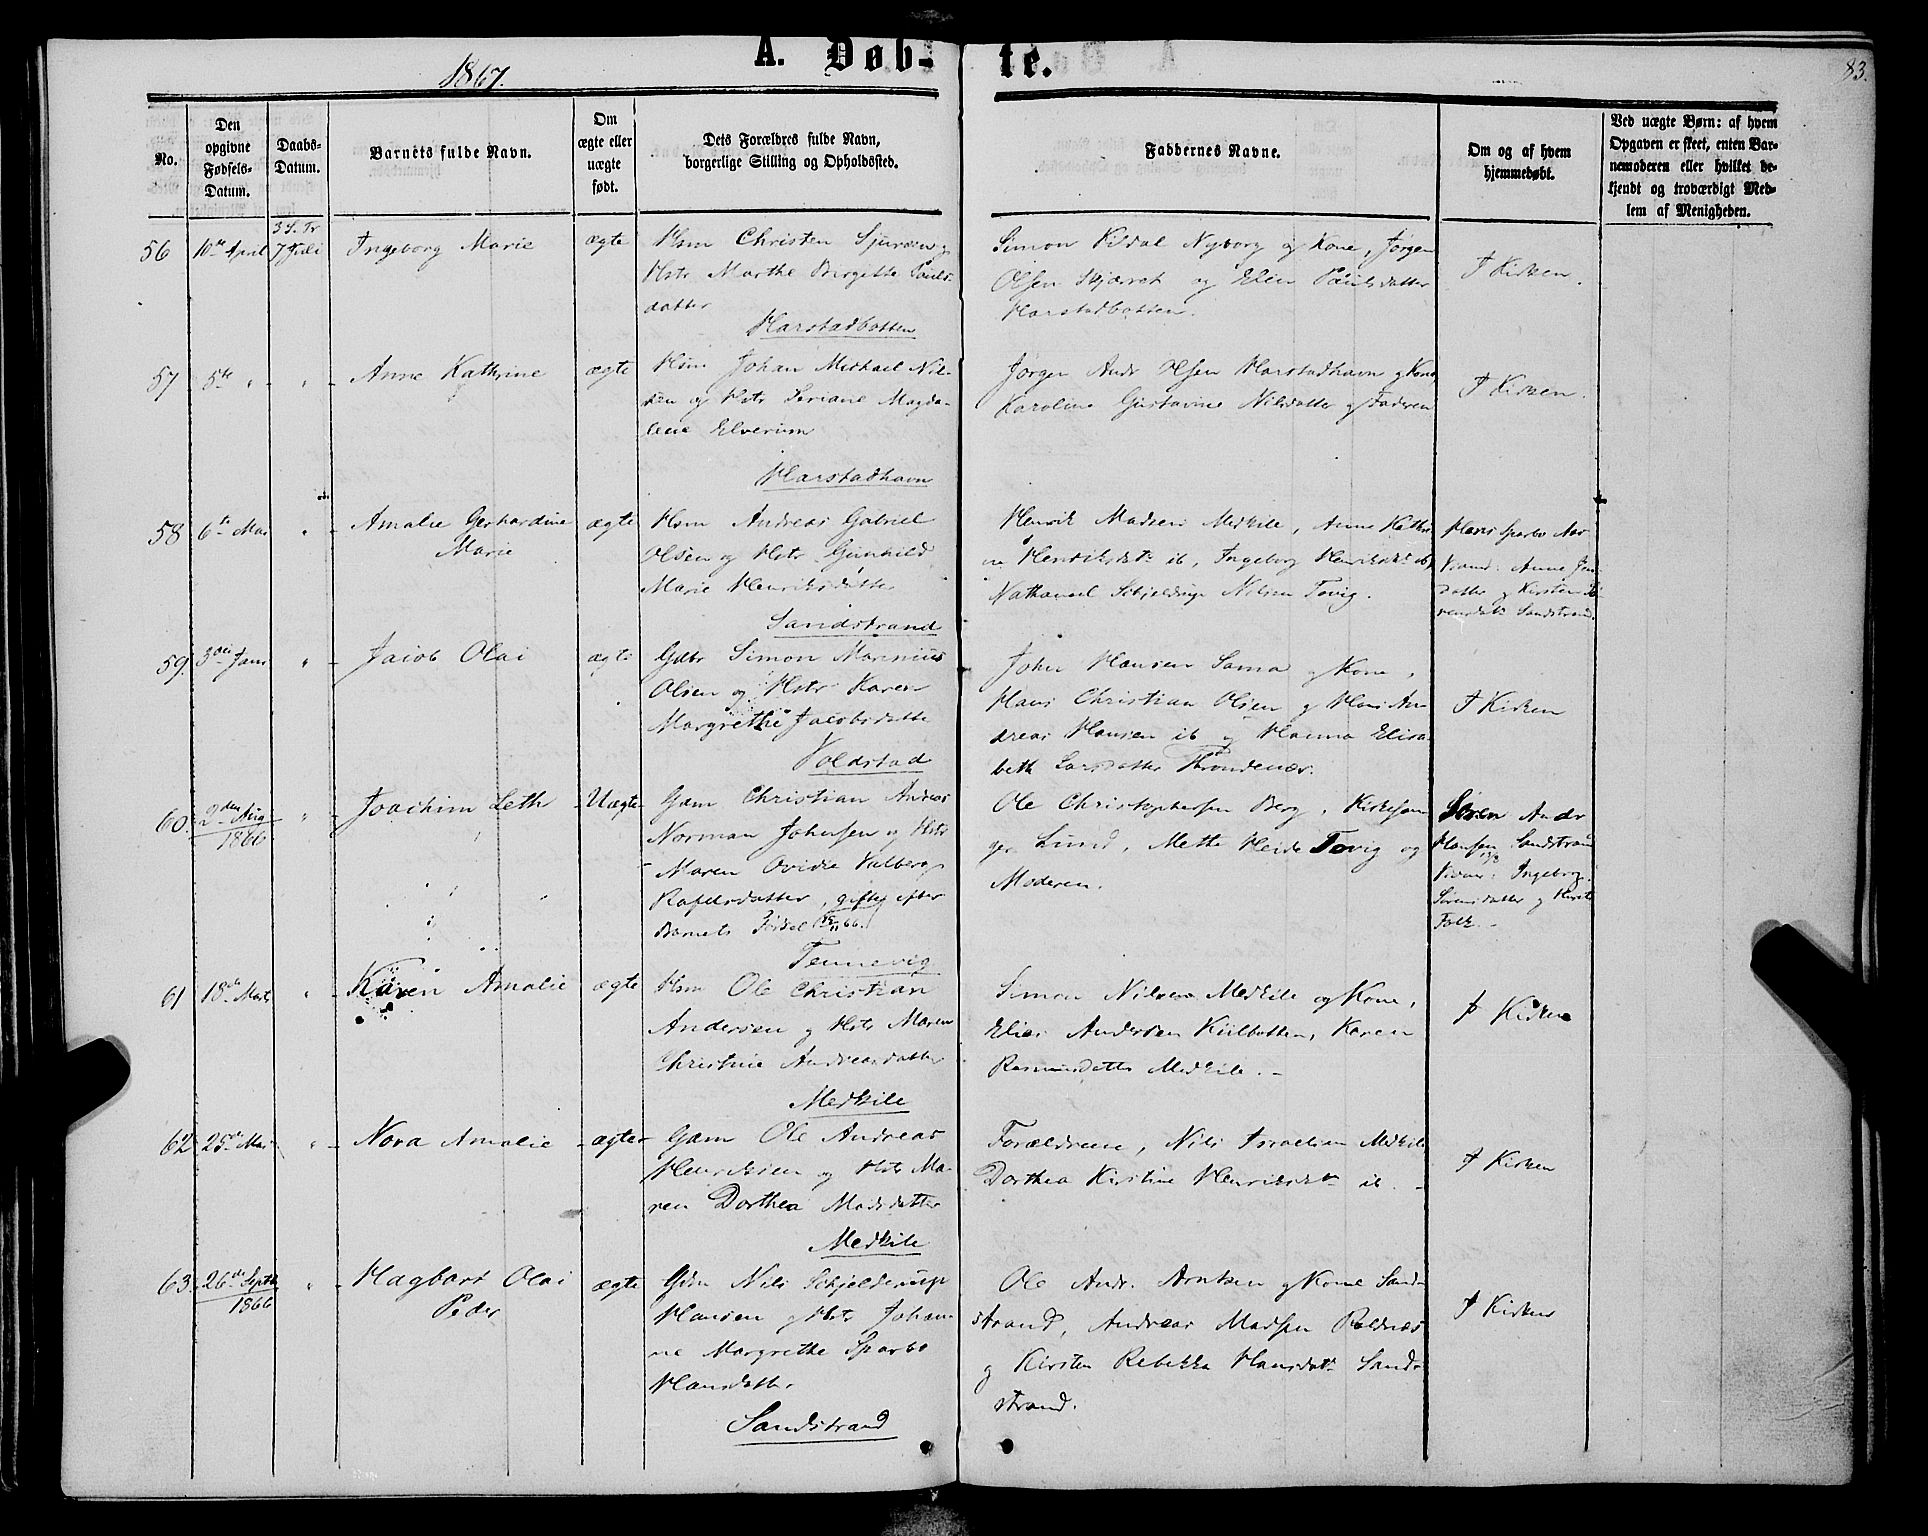 1867.
A. Døb-
te.
83.
No.
Den
opgivne
Fødsels-
Datum.
Daabs-
Datum.
Barnets fulde Navn.
Om
ægte eller
uægte
født.
Dets Forældres fulde Navn,
borgerlige Stilling og Opholdssted.
Faddernes Navne.
Om og af hvem
hjemmedøbt.
Ved uægte Børn: af hvem
Opgaven er skeet, enten Bar-
nemoderen eller hvilket be-
kjendt og troværdigt Med-
lem af Menigheden.
3 S. Tr
56 10de April 7 Juli Ingeborg Marie ægte
Hsm Christen Sjursen og
Hstr Marthe Birgitte Pauls-
datter
Harstadbotten
Simon Kildal Nyborg og Kone, Jørgen
Olsen og Elen Paulsdatter
Harstadbotten.
I Kirken.
57 5te " " Anne Kathrine ægte
Hsm Johan Michael Nil-
sen og Hstr Seriane Magda-
lene Elverum
Harstadhavn
Jørgen Andr Olsen Harstadhavn og Kone,
Karoline Gustavine Nilsdatter og Faderen
I Kirken.
58 6te Mai " Amalie Gerhardine
Marie
ægte
Hsm Andreas Gabriel
Olsen og Hstr Gunhild
Marie Henriksdatter
Sandstrand
Henrik Madsen Medkile, Anne Kathri-
ne Henriksdtr ib, Ingeborg Henriksdtr ib,
Nathanael Nilsen Tovig.
Hans Sparbo
Anne
datter og Kirsten
Sandstrand
59. 3die Janr " Jacob Olai ægte
Gdbr Simon Marinius
Olsen og Hstr Karen
Margrethe Jacobsdatter
Voldstad
Johan Hansen Sama og Kone,
Hans Christian Olsen og Hans An-
dreas Hansen ib og Hanna Elisa-
beth Larsdatter Throndenæs.
I Kirken
60. 2den Aug " Joachim Leth Uægte
1866
Gdm Christian Andreas
Norman Johnsen og Hstr
Maren Ovidia Valberg
Rafelsdatter, gifte efter
Barnets Fødsel 66.
Tennevig
Ole Christophersen Berg, Kirkesan-
ger Lund, Mette Heide Tovig og
Moderen.
Søren Andr
Hansen Sandstrand
Ingeborg
Sørensdatter og
Falk.
61 18de Marts " Karen Amalie ægte
Hsm Ole Christian
Andersen og Hstr Maren
Christine Andreasdatter
Medkile
Simon Nilsen Medkile og Kone,
Elias Andersen Kilbotten, Karen
Rasmusdatter Medkile.
I Kirken
62 25de Mai " Nora Amalie ægte
Gdm Ole Andreas
Henriksen og Hstr Ma-
ren Dorthea Madsdatter
Medkile
Forældrene, Nils Israelsen Medkile
Dorthea Kirstine Henriksdtr ib.
I Kirken
63. 26de Septbr " Hagbart Olai
1866
Peder
ægte
Gdm Nils Schjelderup
Hansen og Hstr Johan-
ne Margrethe Sparbo
Hansdatter
Sandstrand
Ole Andr. Arntsen og Kone Sand-
strand, Andreas Madsen Roldnæs
og Kirsten Rebekka Hansdatr Sand-
strand.
I Kirken